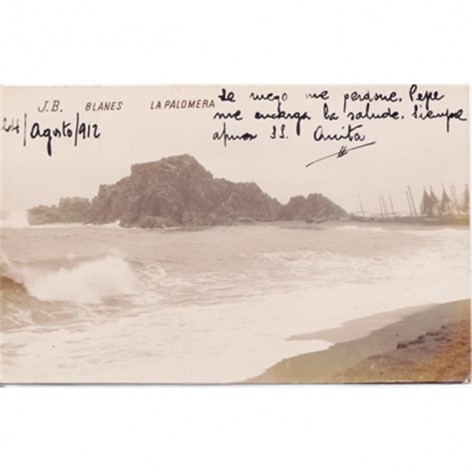 J.B. BLANES LA PALOMERA
24/Agosto/912
Le ruego me perdone. Pepe
me encarga la salude. Siempre
Anita